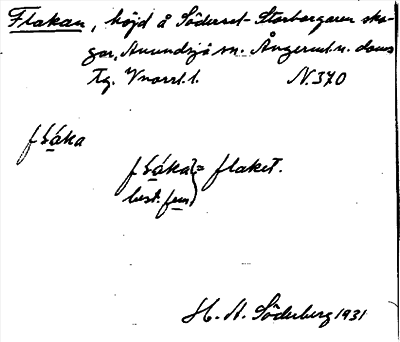 Flakan, höjd å Söderset-Storbergaren sko-
gar, Anundsjö sn. Ångerml. n. doms
tg. Vnorrl. l. N. 370
fɫáka
fɫáka } = flaket.
best. fem
H. A. Söderberg 1931